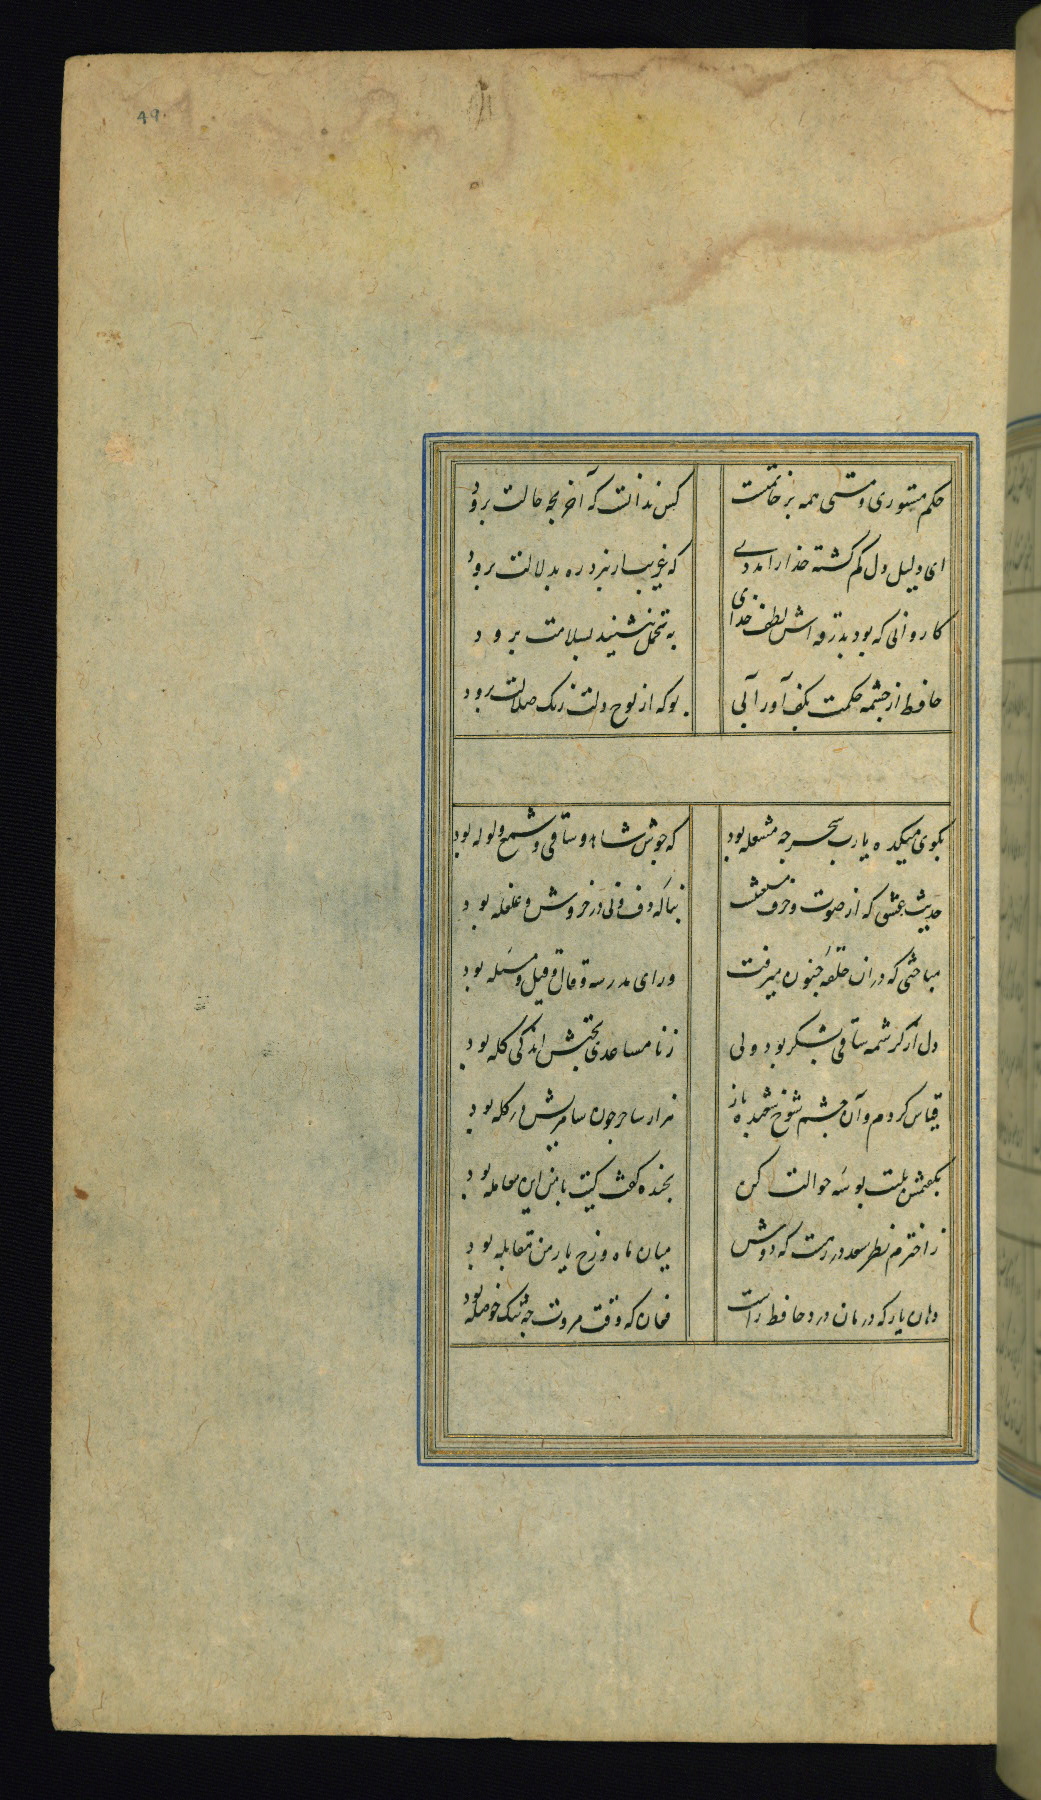 49
حکم مستوری و مستی همه بر خاتمتست
کس ندانست که آخر بچه حالت برود
ای دلیل دل گم گشته خدا را مددی
که غریب ار نبرد ره بدلالت برود
کاروانی که بود بدرقه اش لطف خدای
به تحمل بنشیند بسلامت برود
حافظ از چشمه حکمت بکف آور آبی
بو که از لوح دلت زنک ضلالت برود
بکوی میکده یارب سحر چه مشعله بود
که جوش شاهد و ساقی و شمع ولوله بود
حدیث عشق که از صوت و حرف مستغنیست
بناله دف و نی در خروش و غلغله بود
مباحثی که در ان حلقه جنون میرفت
ورای مدرسه و قال و قیل و مسئله بود
دل از کرشمه ساقی بشکر بود ولی
ز نا مساعدی بختش اندکی کله بود
قیاس کردم و آن چشم شوخ شعبده باز
هزار ساحر چون سامریش در کله بود
بکفتمش بلبت بوسه حوالت کن
بخنده کفت کیت با من این معامله بود
ز اخترم نظر سعد در رهست که دوش
میان ماه و رخ یار من مقابله بود
دهان یار که درمان درد حافظ راست
فغان که وقت مروت چه تنک حوصله بود